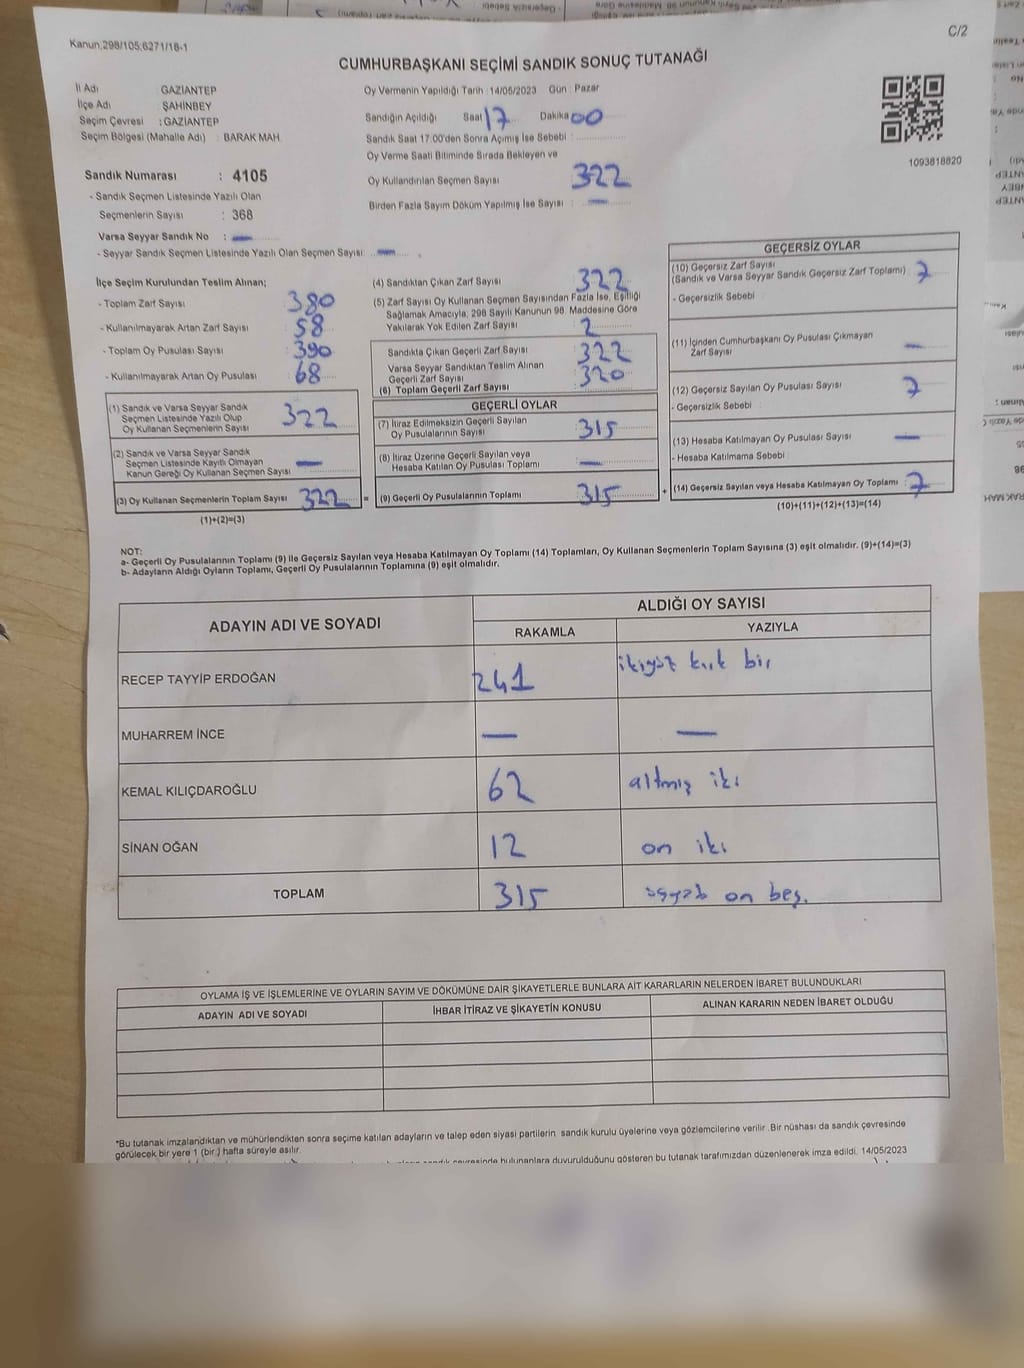 C/2
Kanun;298/105;6271/18-1
CUMHURBAŞKANI SEÇİMİ SANDIK SONUÇ TUTANAĞI
İl Adı GAZİANTEP
İlçe Adı ŞAHİNBEY
Seçim Çevresi : GAZİANTEP
Seçim Bölgesi (Mahalle Adı) : BARAK MAH.
Sandık Numarası : 4105
- Sandık Seçmen Listesinde Yazılı Olan
Seçmenlerin Sayısı : 368
Varsa Seyyar Sandık No : —
- Seyyar Sandık Seçmen Listesinde Yazılı Olan Seçmen Sayısı: —
Oy Vermenin Yapıldığı Tarih : 14/05/2023 Gün : Pazar
Sandığın Açıldığı Saat 17 Dakika 00
Sandık Saat 17:00'den Sonra Açımış İse Sebebi :
Oy Verme Saati Bitiminde Sırada Bekleyen ve
Oy Kullandırılan Seçmen Sayısı 322
Birden Fazla Sayım Döküm Yapılmış İse Sayısı : —
1093818820
İlçe Seçim Kurulundan Teslim Alınan;
- Toplam Zarf Sayısı 380
- Kullanılmayarak Artan Zarf Sayısı 58
- Toplam Oy Pusulası Sayısı 390
- Kullanılmayarak Artan Oy Pusulası 68
(1) Sandık ve Varsa Seyyar Sandık
Seçmen Listesinde Yazılı Olup
Oy Kullanan Seçmenlerin Sayısı 322
(2) Sandık ve Varsa Seyyar Sandık
Seçmen Listesinde Kayıtlı Olmayan
Kanun Gereği Oy Kullanan Seçmen Sayısı —
(3) Oy Kullanan Seçmenlerin Toplam Sayısı 322 =
(1)+(2)=(3)
(4) Sandıktan Çıkan Zarf Sayısı 322
(5) Zarf Sayısı Oy Kullanan Seçmen Sayısından Fazla İse, Eşitliği
Sağlamak Amacıyla; 298 Sayılı Kanunun 98. Maddesine Göre
Yakılarak Yok Edilen Zarf Sayısı : 2
Sandıkta Çıkan Geçerli Zarf Sayısı : 322
Varsa Seyyar Sandıktan Teslim Alınan
Geçerli Zarf Sayısı : 320
(6) Toplam Geçerli Zarf Sayısı
GEÇERLİ OYLAR
(7) İtiraz Edilmeksizin Geçerli Sayılan
Oy Pusulalarının Sayısı : 315
(8) İtiraz Üzerine Geçerli Sayılan veya
Hesaba Katılan Oy Pusulası Toplamı : —
(9) Geçerli Oy Pusulalarının Toplamı : 315 +
GEÇERSİZ OYLAR
(10) Geçersiz Zarf Sayısı
(Sandık ve Varsa Seyyar Sandık Geçersiz Zarf Toplamı) : 7
- Geçersizlik Sebebi :
(11) İçinden Cumhurbaşkanı Oy Pusulası Çıkmayan
Zarf Sayısı : —
(12) Geçersiz Sayılan Oy Pusulası Sayısı : 7
- Geçersizlik Sebebi :
(13) Hesaba Katılmayan Oy Pusulası Sayısı : —
- Hesaba Katılmama Sebebi :
(14) Geçersiz Sayılan veya Hesaba Katılmayan Oy Toplamı : 7
(10)+(11)+(12)+(13)=(14)
NOT:
a- Geçerli Oy Pusulalarının Toplamı (9) ile Geçersiz Sayılan veya Hesaba Katılmayan Oy Toplamı (14) Toplamları, Oy Kullanan Seçmenlerin Toplam Sayısına (3) eşit olmalıdır. (9)+(14)=(3)
b- Adayların Aldığı Oyların Toplamı, Geçerli Oy Pusulalarının Toplamına (9) eşit olmalıdır.
ADAYIN ADI VE SOYADI ALDIĞI OY SAYISI
RAKAMLA YAZIYLA
RECEP TAYYİP ERDOĞAN 241 ikiyüz kırk bir
MUHARREM İNCE — —
KEMAL KILIÇDAROĞLU 62 altmış iki
SİNAN OĞAN 12 on iki
TOPLAM 315 üçyüz on beş.
OYLAMA İŞ VE İŞLEMLERİNE VE OYLARIN SAYIM VE DÖKÜMÜNE DAİR ŞİKAYETLERLE BUNLARA AİT KARARLARIN NELERDEN İBARET BULUNDUKLARI
ADAYIN ADI VE SOYADI İHBAR İTİRAZ VE ŞİKAYETİN KONUSU ALINAN KARARIN NEDEN İBARET OLDUĞU
*Bu tutanak imzalandıktan ve mühürlendikten sonra seçime katılan adayların ve talep eden siyasi partilerin sandık kurulu üyelerine veya gözlemcilerine verilir. Bir nüshası da sandık çevresinde
görülecek bir yere 1 (bir) hafta süreyle asılır.
sandık çevresinde bulunanlara duyurulduğunu gösteren bu tutanak tarafımızdan düzenlenerek imza edildi. 14/05/2023